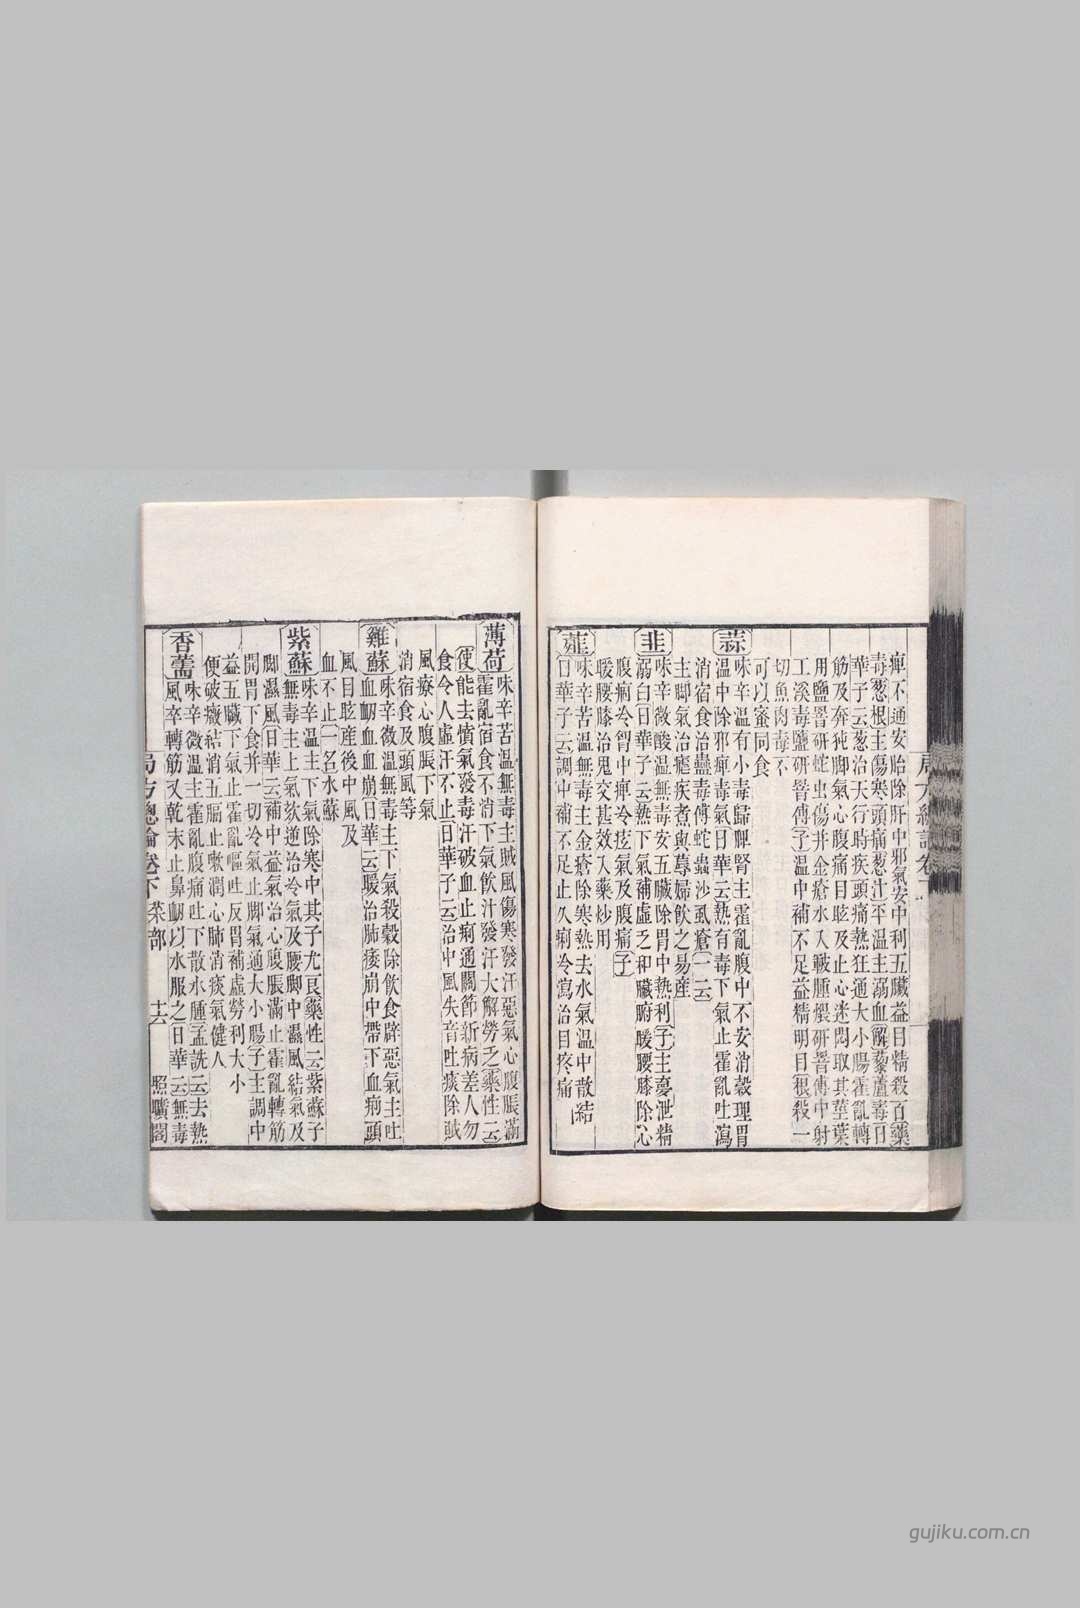 痺不通安胎除肝中邪氣安中利五臟益目精殺百藥
毒葱根主傷寒頭痛葱汁平溫主溺血解藜蘆毒日
華子云葱治天行時疾頭痛熱狂通大小腸霍亂轉
筋及奔㹠脚氣心腹痛目眩及止心迷悶取其莖葉
用鹽罯研蛇虫傷并金瘡水入皸腫煨研罯傅中射
工溪毒鹽研罯傅子溫中補不足益精明目根殺一
切魚肉毒不
可以蜜同食
蒜
味辛溫有小毒歸脾腎主霍亂腹中不安消穀理胃
溫中除邪痺毒氣日華云熱有毒下氣止霍亂吐瀉
消宿食治蠱毒傅蛇蟲沙虱瘡一云
主脚氣治瘧疾煮與蓐婦飲之易産
韭
味辛微酸溫無毒安五臟除胃中熱利子主夢泄精
溺白日華子云熱下氣補虛乏和臟腑暖腰膝除心
腹痼冷胷中痺冷痃氣及腹痛子
暖腰膝治鬼交甚效入藥炒用
薤
味辛苦溫無毒主金瘡除寒熱去水氣溫中散結
日華子云調中補不足止久痢冷瀉治目疼痛
薄荷
味辛苦溫無毒主賊風傷寒發汗惡氣心腹脹滿
霍亂宿食不消下氣飲汁發汗大解勞乏藥性云
使能去憤氣發毒汗破血止痢通關節新病差人勿
食令人虛汗不止日華子云治中風失音吐痰除賊
風療心腹脹下氣
消宿食及頭風等
雞蘇
味辛微溫無毒主下氣殺穀除飲食辟惡氣主吐
血衂血血崩日華云暖治肺痿崩中帶下血痢頭
風目眩産後中風及
血不止一名水蘇
紫蘇
味辛溫主下氣除寒中其子尤良藥性云紫蘇子
無毒主上氣欬逆治冷氣及腰脚中濕風結氣及
脚濕風日華云補中益氣治心腹脹滿止霍亂轉筋
開胃下食并一切冷氣止脚氣通大小腸子主調中
益五臟下氣止霍亂嘔吐反胃補虛勞利大小
便破癥結消五膈止嗽潤心肺消痰氣健人
香薷
味辛微溫主霍亂腹痛吐下散水腫孟詵云去熱
風卒轉筋又乾末止鼻衂以水服之日華云無毒
局方總論卷下 菜部 照曠閣
gujiku.com.cn